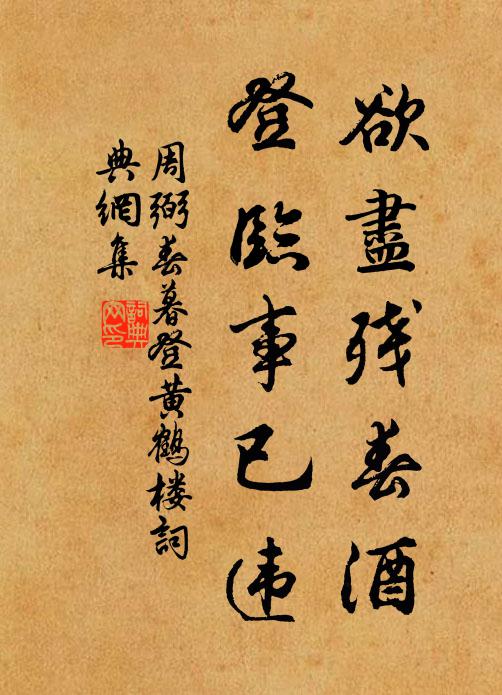 欲盡残春酒
登臨事已违
周弼春暮登黄鶴楼詞
典網集
詞典